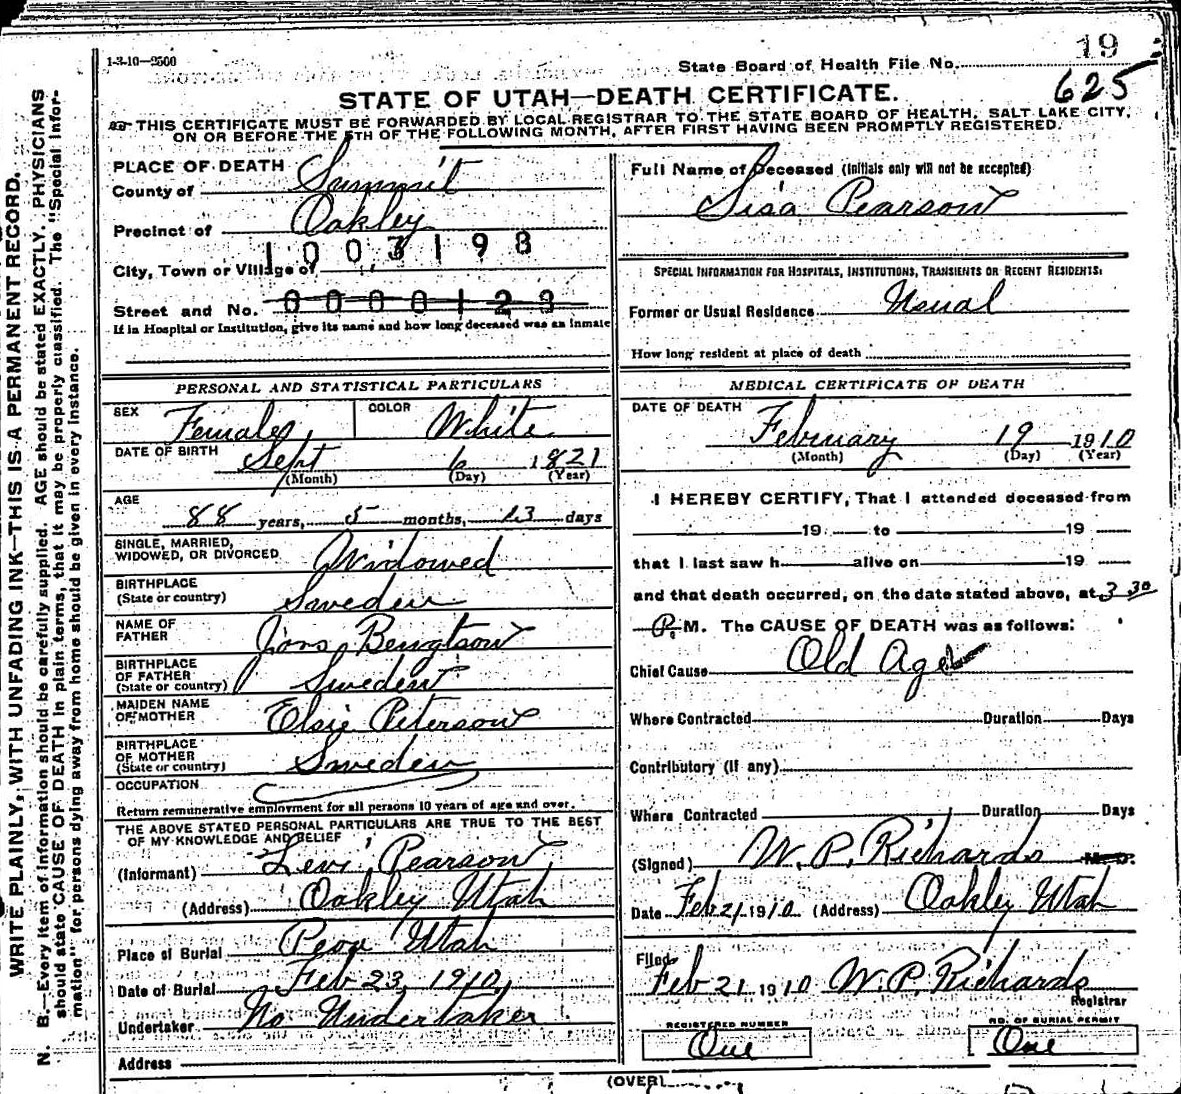 1-3-10—2500
19
State Board of Health File No.
625
STATE OF UTAH—DEATH CERTIFICATE.
THIS CERTIFICATE MUST BE FORWARDED BY LOCAL REGISTRAR TO THE STATE BOARD OF HEALTH, SALT LAKE CITY,
ON OR BEFORE THE 5TH OF THE FOLLOWING MONTH, AFTER FIRST HAVING BEEN PROMPTLY REGISTERED.
WRITE PLAINLY, WITH UNFADING INK—THIS IS A PERMANENT RECORD.
N. B.—Every item of information should be carefully supplied. AGE should be stated EXACTLY. PHYSICIANS
should state CAUSE OF DEATH in plain terms, that it may be properly classified. The "Special Infor-
mation" for persons dying away from home should be given in every instance.
PLACE OF DEATH
County of Summit
Precinct of Oakley
1003198
City, Town or Village of
Street and No. 0000123
If in Hospital or Institution, give its name and how long deceased was an inmate
PERSONAL AND STATISTICAL PARTICULARS
SEX Female
COLOR White
DATE OF BIRTH Sept 6 1821
(Month) (Day) (Year)
AGE
88 years, 5 months, 13 days
SINGLE, MARRIED,
WIDOWED, OR DIVORCED Widowed
BIRTHPLACE
(State or country) Sweden
NAME OF
FATHER Jons Bengtson
BIRTHPLACE
OF FATHER
(State or country) Sweden
MAIDEN NAME
OF MOTHER Elsie Peterson
BIRTHPLACE
OF MOTHER
(State or country) Sweden
OCCUPATION
Return remunerative employment for all persons 10 years of age and over.
THE ABOVE STATED PERSONAL PARTICULARS ARE TRUE TO THE BEST
OF MY KNOWLEDGE AND BELIEF
(Informant) Levi Pearson
(Address) Oakley Utah
Place of Burial Peoa Utah
Date of Burial Feb 23, 1910,
Undertaker No Undertaker
Address
Full Name of Deceased (Initials only will not be accepted)
Sisa Pearson
SPECIAL INFORMATION FOR HOSPITALS, INSTITUTIONS, TRANSIENTS OR RECENT RESIDENTS:
Former or Usual Residence Usual
How long resident at place of death
MEDICAL CERTIFICATE OF DEATH
DATE OF DEATH
February 19 1910
(Month) (Day) (Year)
I HEREBY CERTIFY, That I attended deceased from
19 to 19
that I last saw h alive on 19
and that death occurred, on the date stated above, at 3 30
P. M. The CAUSE OF DEATH was as follows:
Chief Cause Old Age
Where Contracted Duration Days
Contributory (if any)
Where Contracted Duration Days
(Signed) W. P. Richards M. D.
Date Feb 21 1910 (Address) Oakley Utah
Filed
Feb 21 1910 W. P. Richards
Registrar
REGISTERED NUMBER
One
NO. OF BURIAL PERMIT
One
(OVER)